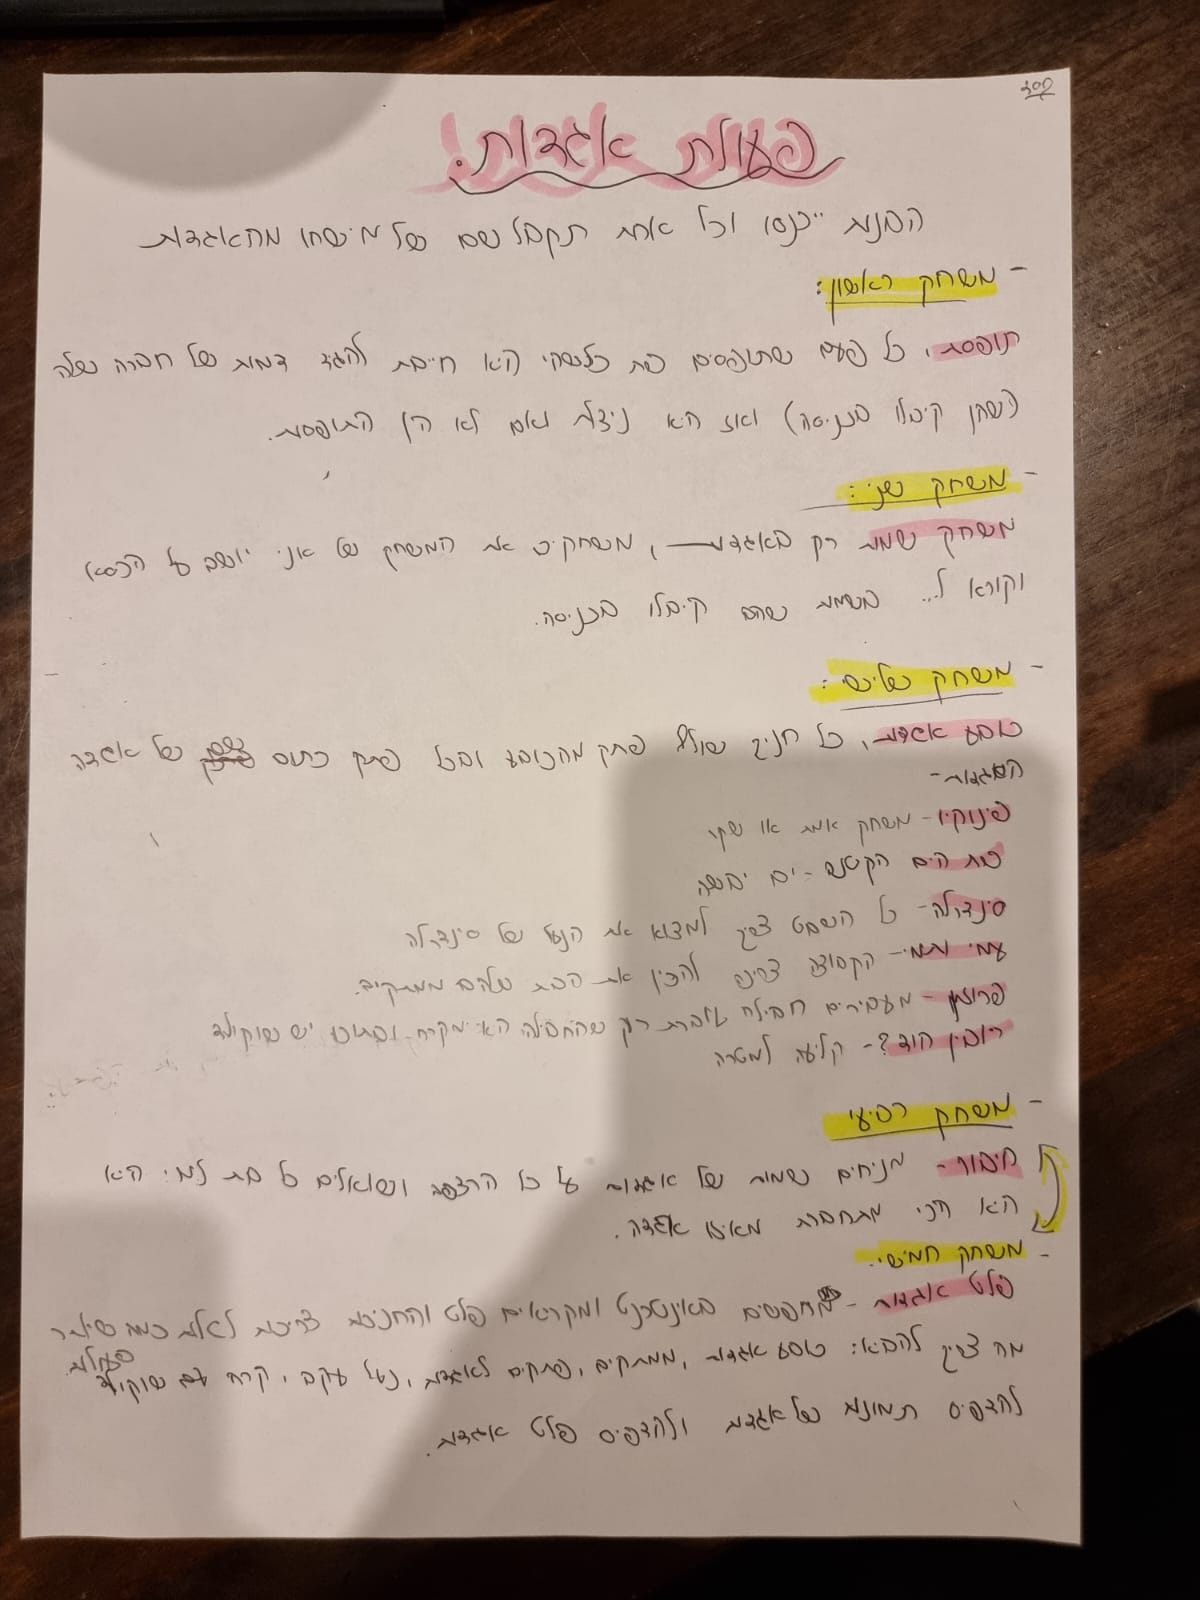 בס״ד
פעולת אגדות!
הבנות ייכנסו וכל אחת תקבל שם של מישהו מהאגדות
- משחק ראשון:
תופסת, כל פעם שתופסים בת כלשהי היא חייבת להגיד דמות של חברה שלה
(שהן קיבלו בכניסה) ואז היא ניצלת ואם לא הן התופסת.
- משחק שני:
משחק שמות רק באגדות, משחקים את המשחק של אני יושב על הכסא
וקורא ל... בשמות שהם קיבלו בכניסה.
- משחק שלישי:
כובע אגדות, כל חניך שולף פתק מהכובע ובכל פתק כתוב שם של אגדה
האגדות-
פינוקיו - משחק אמת או שקר
בת הים הקטנה - ים יבשה
סינדרלה - כל השבט צריך למצוא את הנעל של סינדרלה
עמי ותמי - הקבוצה צריכה להכין את הבית שלהם ממתקים.
פרוזן - מעבירים חבילה עוברת רק שהחבילה היא מקרח ובתוכו יש שוקולד
רובין הוד? - קליעה למטרה
- משחק רביעי
חיבור - מניחים שמות של אגדות על כל הרצפה ושואלים כל בת למי היא
היא הכי מתחברת מאיזו אגדה.
- משחק חמישי.
פלט אגדות - מחפשים באינטרנט ומקריאים פלט והחניכות צריכות לגלות כמה שיותר
מה צריך להביא: כובע אגדות, ממתקים, פתקים לאגדות, נעל עקב, קרח עם שוקולד
להדפיס תמונות של אגדות ולהדפיס פלט אגדות.